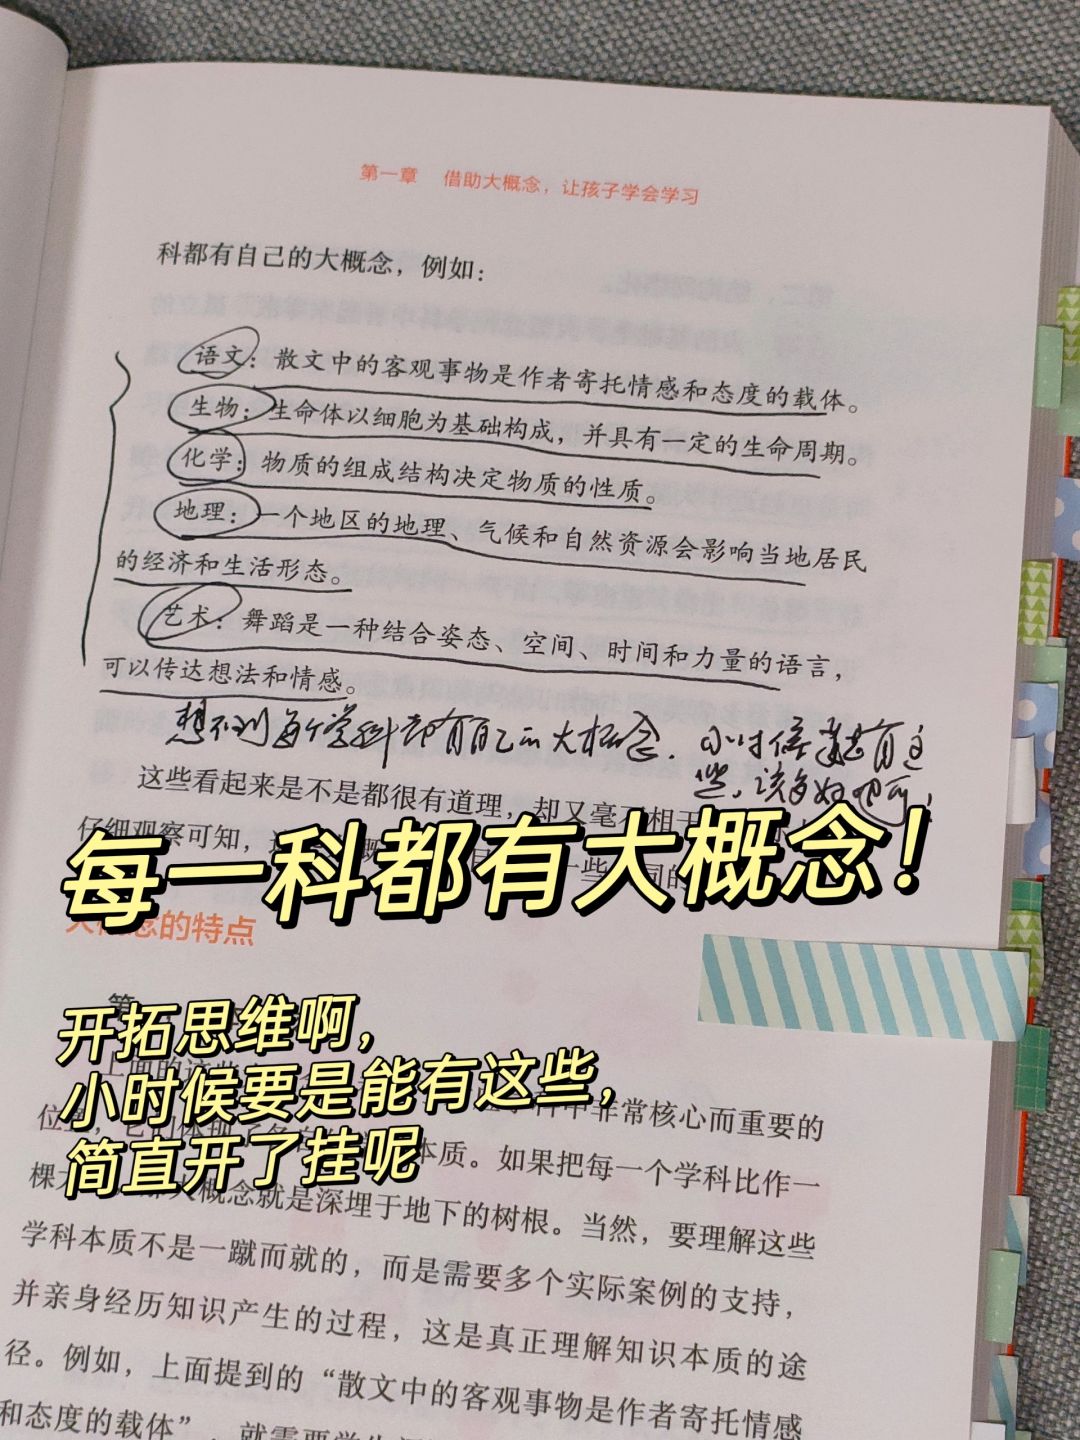 第一章 借助大概念，让孩子学会学习
科都有自己的大概念，例如：
语文：散文中的客观事物是作者寄托情感和态度的载体。
生物：生命体以细胞为基础构成，并具有一定的生命周期。
化学：物质的组成结构决定物质的性质。
地理：一个地区的地理、气候和自然资源会影响当地居民
的经济和生活形态。
艺术：舞蹈是一种结合姿态、空间、时间和力量的语言，
可以传达想法和情感。
想不到每个学科都有自己的大概念，小时候要有这
些，该多好
这些看起来是不是都很有道理，却又毫不相干
仔细观察可知，
每一科都有大概念！
的特点
第一
开拓思维啊，
小时候要是能有这些，
简直开了挂呢
上面的这些
学科中非常核心而重要的
位置，它们体现了
本质。如果把每一个学科比作一
棵
大概念就是深埋于地下的树根。当然，要理解这些
学科本质不是一蹴而就的，而是需要多个实际案例的支持，
并亲身经历知识产生的过程，这是真正理解知识本质的途
径。例如，上面提到的“散文中的客观事物是作者寄托情感
和态度的载体”，就需要学生